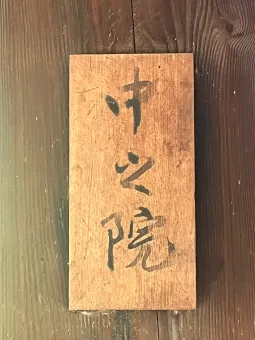 中之院